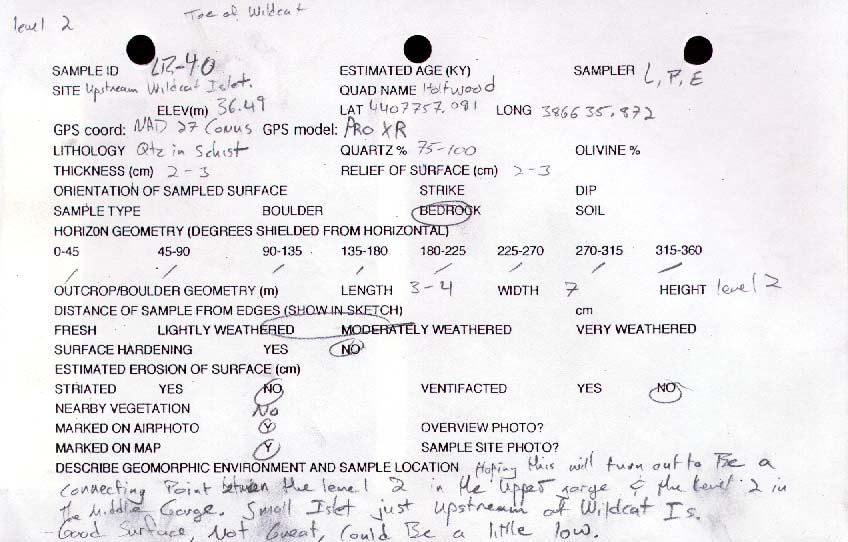 level 2
Toe of Wildcat
SAMPLE ID LR-40 ESTIMATED AGE (KY) SAMPLER L, P, E
SITE Upstream Wildcat Islet. QUAD NAME Holtwood
ELEV(m) 36.49 LAT 4407757.091 LONG 386635.872
GPS coord: NAD 27 Conus GPS model: PRO XR
LITHOLOGY Qtz in Schist QUARTZ % 75-100 OLIVINE %
THICKNESS (cm) 2-3 RELIEF OF SURFACE (cm) 2-3
ORIENTATION OF SAMPLED SURFACE STRIKE DIP
SAMPLE TYPE BOULDER BEDROCK SOIL
HORIZON GEOMETRY (DEGREES SHIELDED FROM HORIZONTAL)
0-45 45-90 90-135 135-180 180-225 225-270 270-315 315-360
/ / / / / / / /
OUTCROP/BOULDER GEOMETRY (m) LENGTH 3-4 WIDTH 7 HEIGHT level 2
DISTANCE OF SAMPLE FROM EDGES (SHOW IN SKETCH) cm
FRESH LIGHTLY WEATHERED MODERATELY WEATHERED VERY WEATHERED
SURFACE HARDENING YES NO
ESTIMATED EROSION OF SURFACE (cm)
STRIATED YES NO VENTIFACTED YES NO
NEARBY VEGETATION No
MARKED ON AIRPHOTO Y OVERVIEW PHOTO?
MARKED ON MAP Y SAMPLE SITE PHOTO?
DESCRIBE GEOMORPHIC ENVIRONMENT AND SAMPLE LOCATION Hoping this will turn out to Be a
connecting Point between the level 2 in the Upper gorge & the level 2 in
the Middle Gorge. Small Islet just upstream of Wildcat Is.
- Good Surface, Not Great, Could Be a little low.